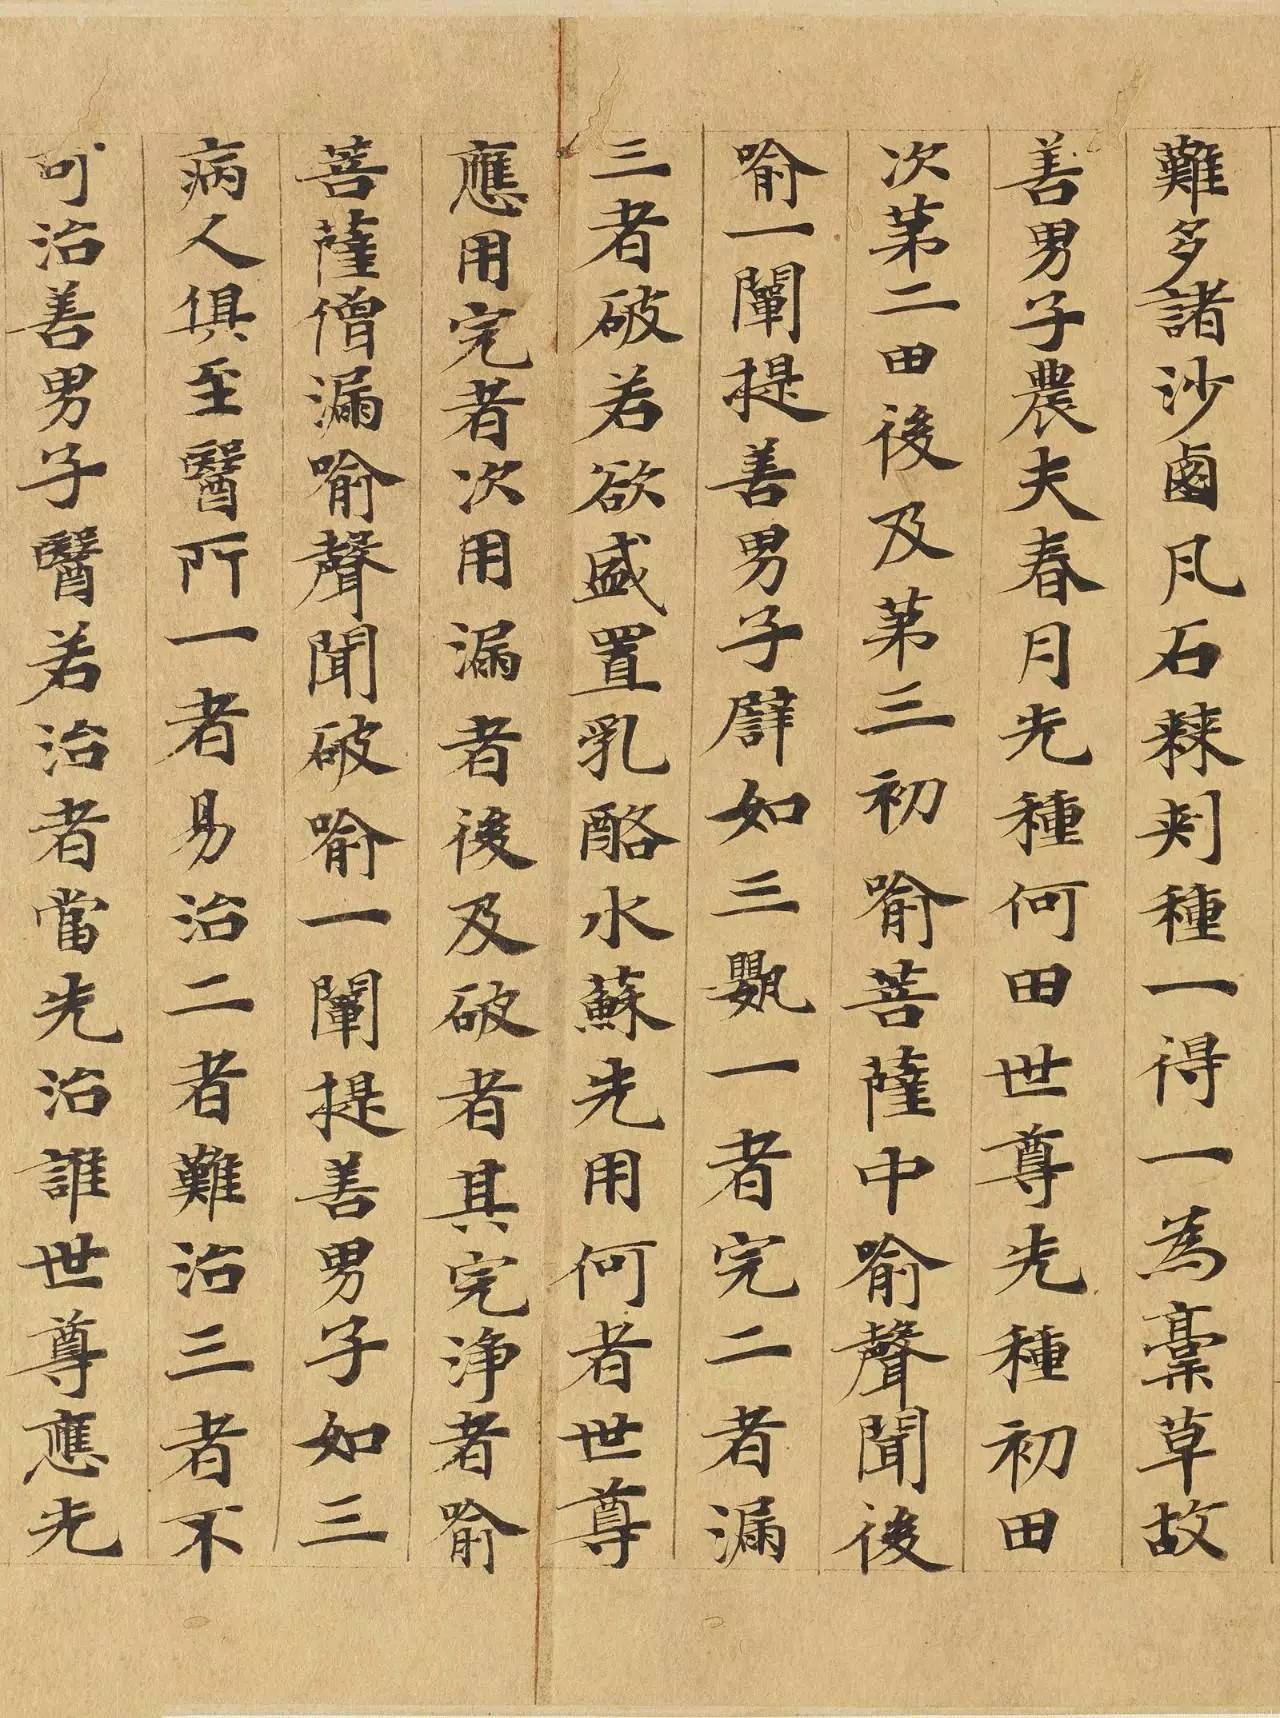 難多諸沙鹵凡石棘刾種一得一為藁草故
善男子農夫春月先種何田世尊先種初田
次苐二田後及苐三初喻菩薩中喻聲聞後
喻一闡提善男子譬如三甖一者完二者漏
三者破若欲盛置乳酪水蘇先用何者世尊
應用完者次用漏者後及破者其完淨者喻
菩薩僧漏喻聲聞破喻一闡提善男子如三
病人俱至醫所一者易治二者難治三者不
可治善男子醫若治者當先治誰世尊應先